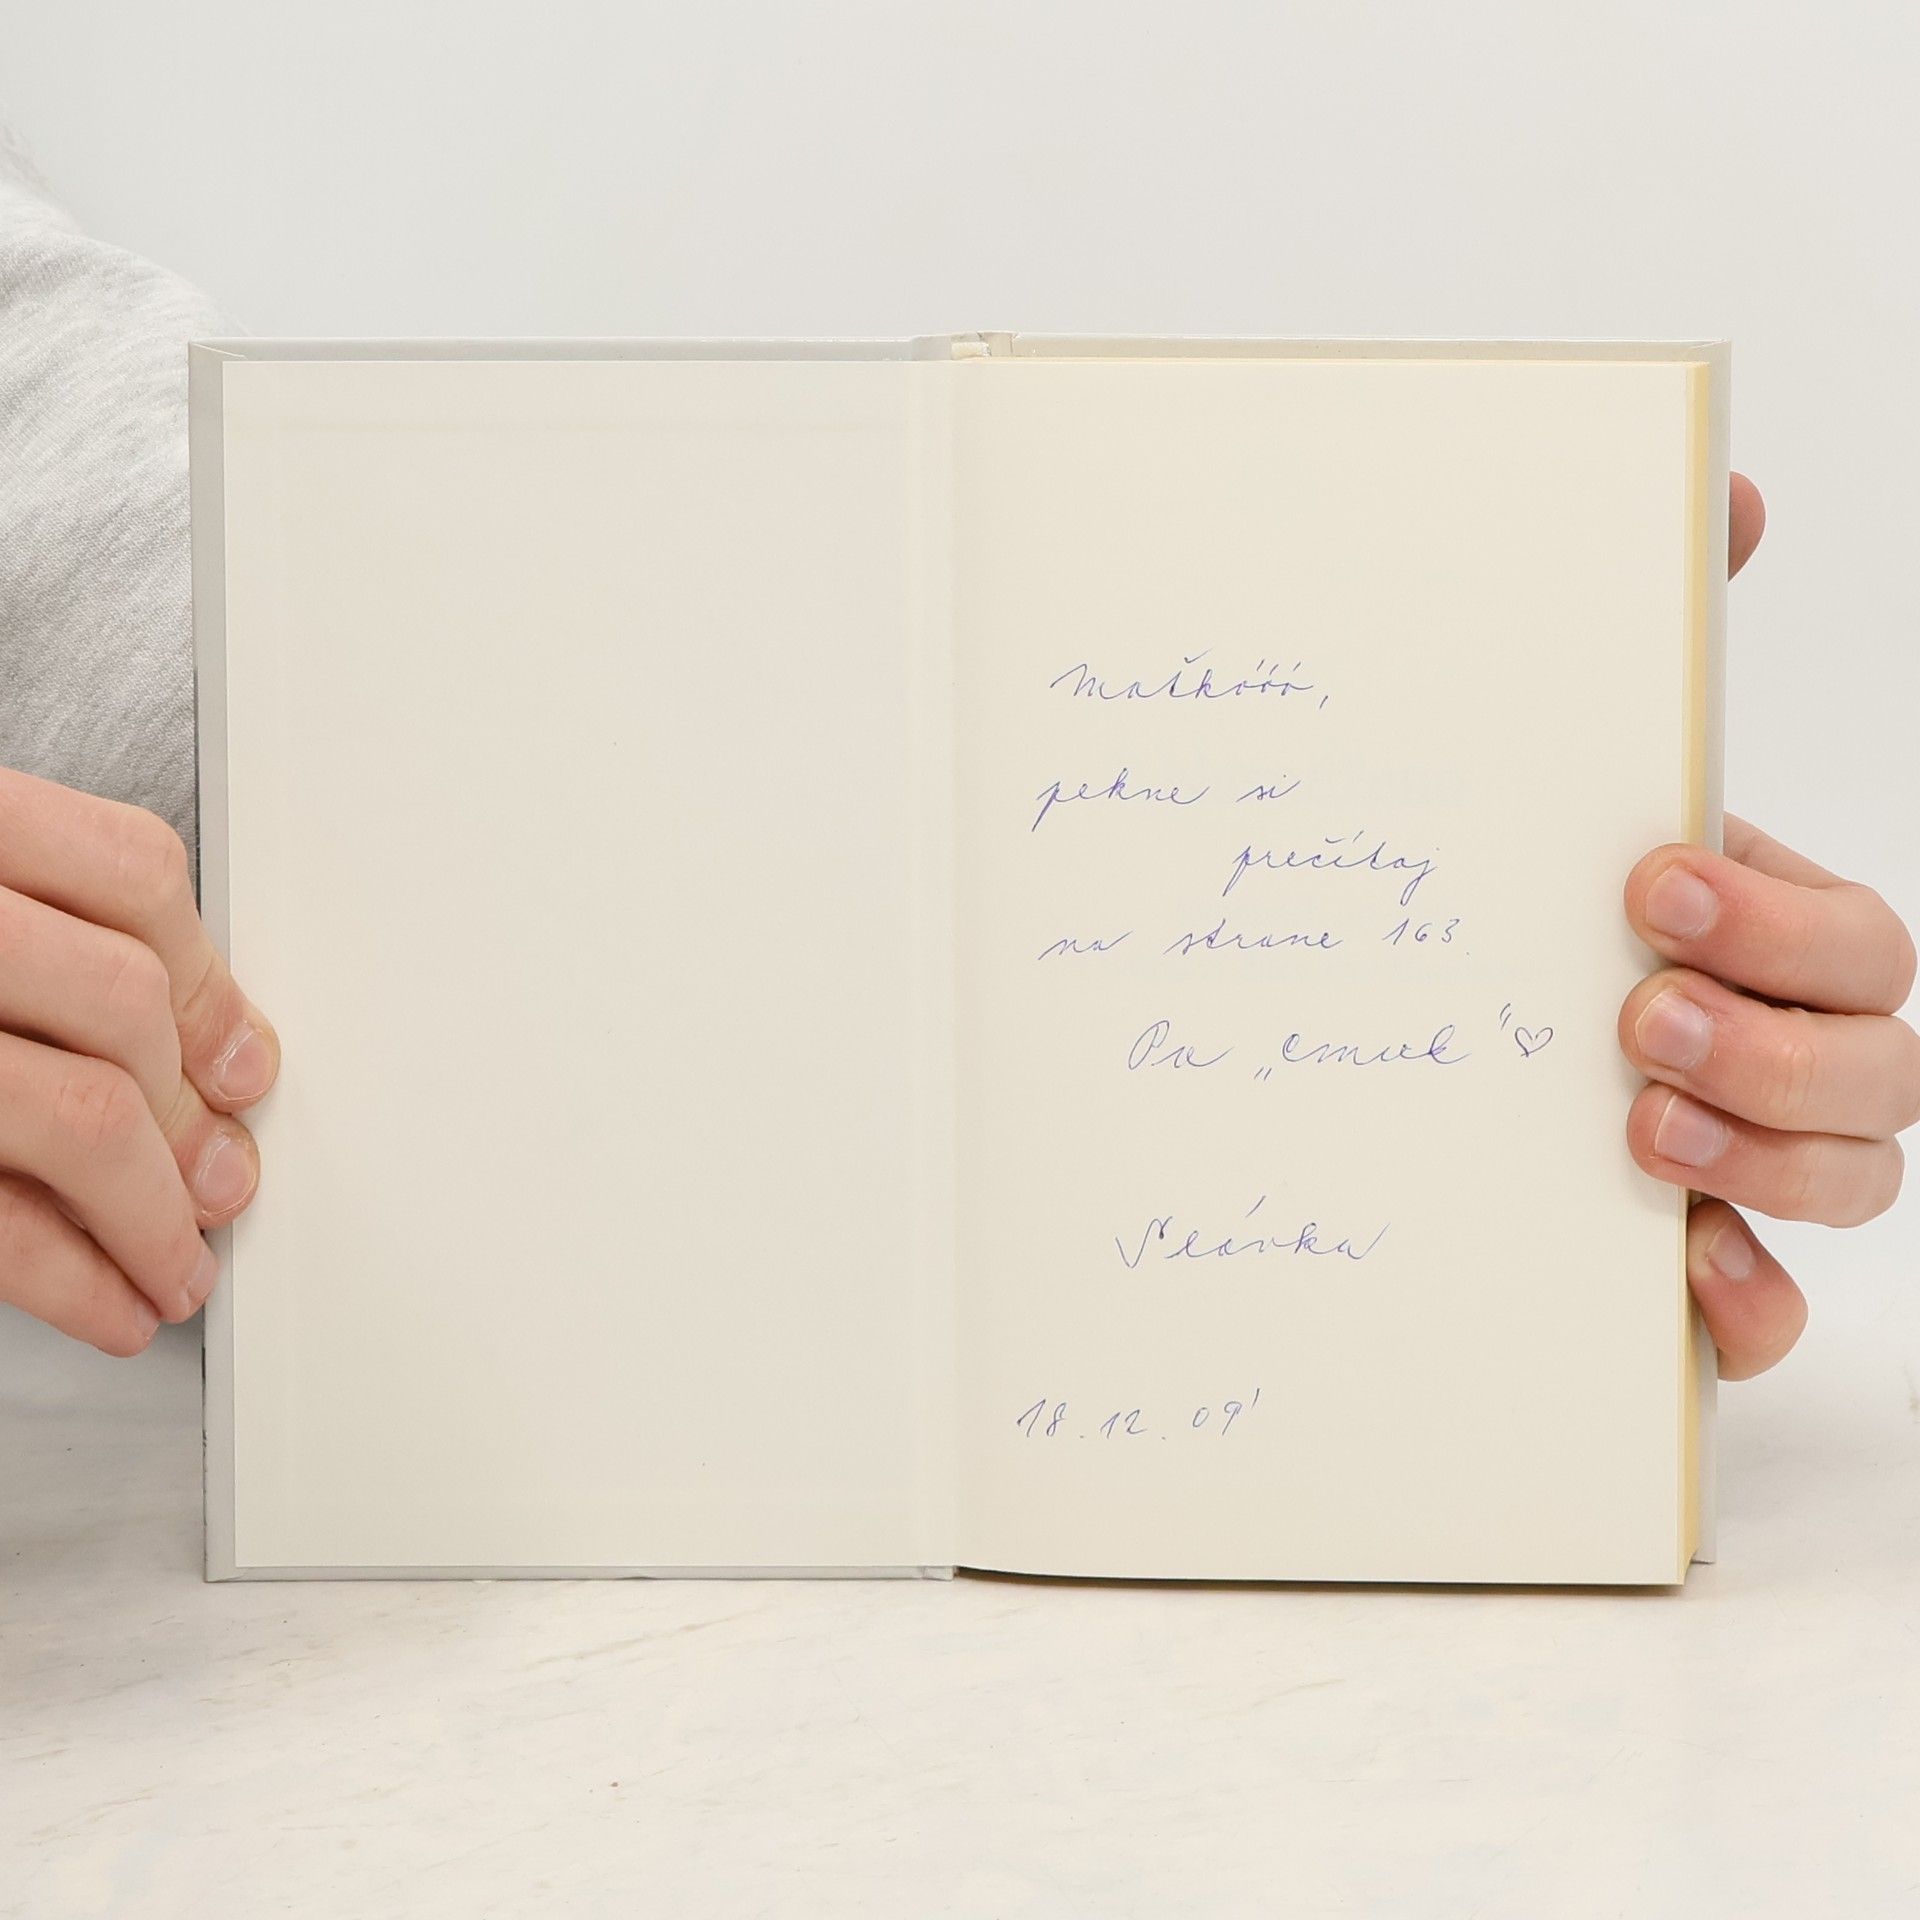 Maťkóóó,
pekne si
prečítaj
na strane 163.
Pa „cmuk“ ♡
Slávka
18.12.09'